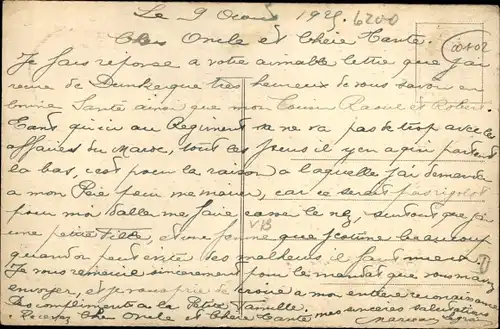 Le 9 Aout 1925. 6200
Cher Oncle et Chère Tante.
Je fais reponse a votre aimable lettre que j'ai
reçue de Dunkerque très heureux de vous savoir en
bonne Santé ainsi que mon Cousin Raoul et Robert.
Tant qu'ici au Regiment sa ne va pas de trop avec les
affaires du Maroc, tout les jours il y en a qui partent
la bas, c'est pour la raison a laquelle j'ai demandé
a mon Père pour me marier, car ce serait pas rigolot
pour moi d'aller me faire casser le nez, surtout que j'ai
une petite Fille, et une femme que j'estime beaucoup
quand on peut eviter ses malheurs il faut mieux.
Je vous remercie sincerement pour le mandat que vous m'avez
envoyer, et je vous prie de croire a mon entière reconaissance
Des compliments a la Petite Famille.
Recevez Cher Oncle et Chère Tante, mes sincères salutations
VB